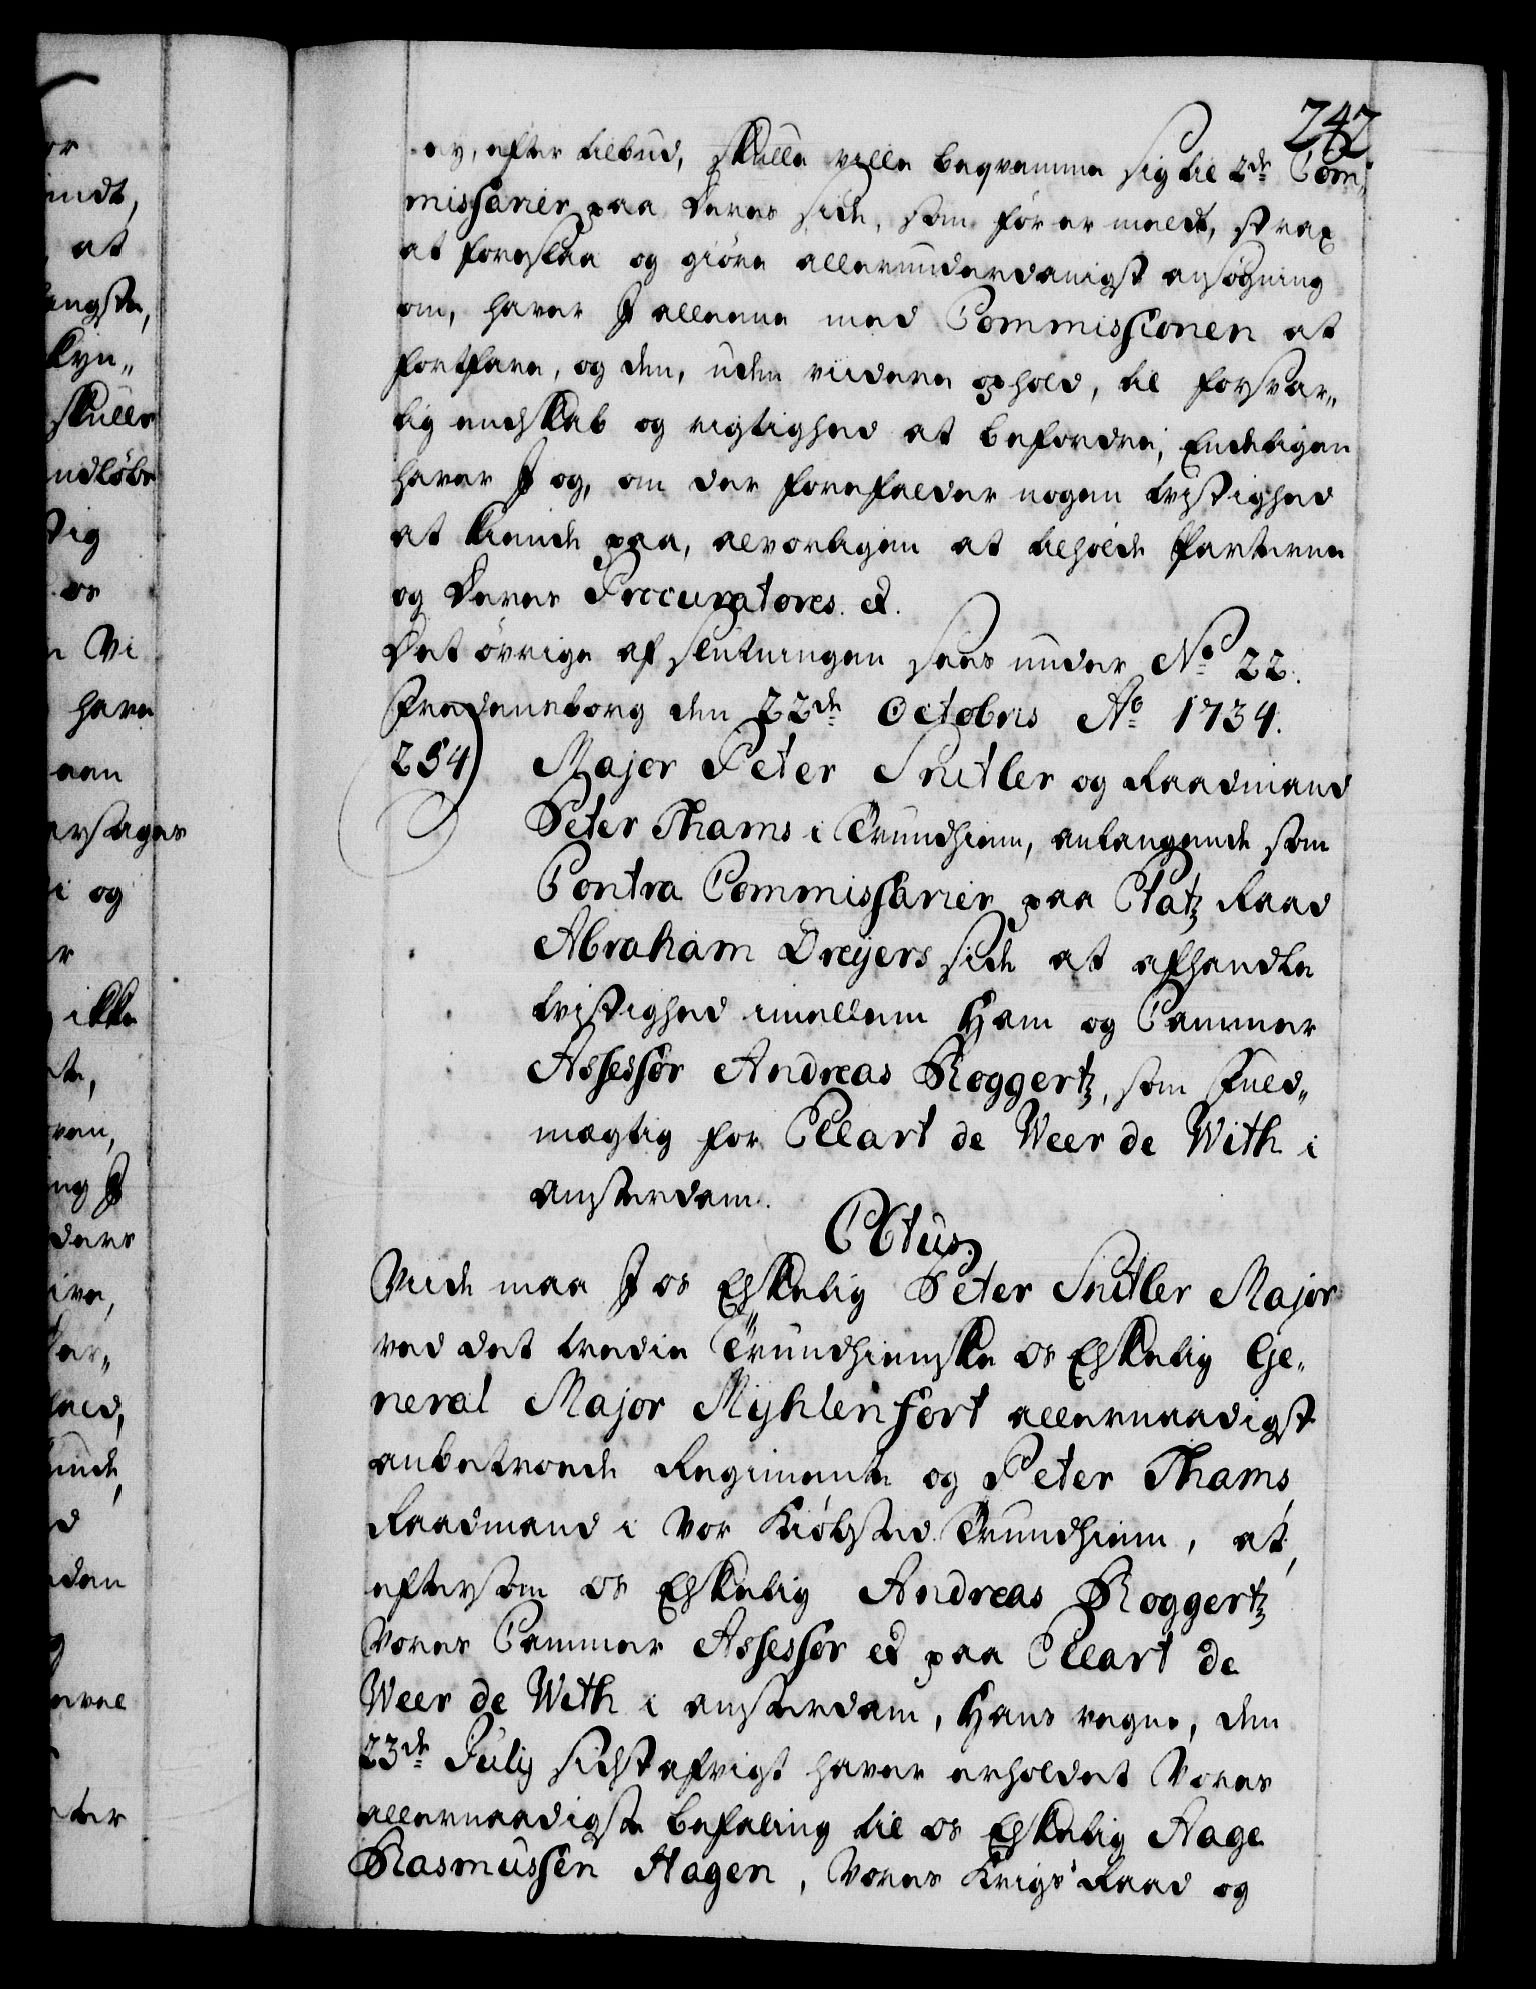 242
ey, efter tilbud, skulle ville beqvemme sig til 2de Com„
missarier paa deres side, som før er meldt, strax
at foreslaa og giøre allerunderdanigst ansøgning
om, haver I alleene med Commissionen at
fortfare, og den, uden viidere ophold, til forsvar„
lig endskab og rigtighed at befordre; Endeligen
haver I og, om der forefalder nogen tvistighed
at kiende paa, alvorligen at tilholde Parterne
og deres Procuratores. et.
Det øvrige af slutningen sees under No 22.
Fredensborg den 22de Octobris Ao 1734.
254) Major Peter Snitler og Raadmand
Peter Thams i Trundhiem, anlangende som
Contra Commissarier paa Etatz Raad
Abraham Dreÿers side at afhandle
tvistighed imellem Ham og Cammer
Assessor Andreas Roggertz, som Fuld„
mægtig for Ellart de Weer de With i
Amsterdam.
C6tus.
Viide maa I os Elskelig Peter Snitler Major
ved det tredie Trundhiemske os Elskelig Ge„
neral Major Myhlenfort allernaadigst
anbetroede Regimente og Peter Thams,
Raadmand i Vor Kiøbsted Trundhiem, at,
eftersom os Elskelig Andreas Roggertz
Vores Cammer Assessor et paa Ellart de
Weer de With i Amsterdam, Hans vegne, den
23de Julij sidst afvigt haver erholdet Vores
allernaadigste befaling til os Elskelig Aage
Rasmussen Hagen, Vores Krigs Raad og